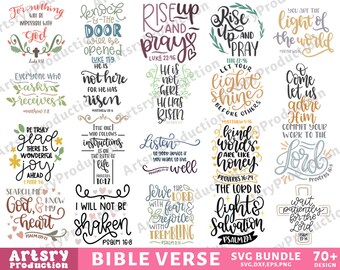 For nothing
will be
impossible with
God
Luke 1:37
Knock
& the
DOOR
will be
opened
Luke 11:9
RISE
up and
PRAY
LUKE 22:46
Rise
up
AND PRAY
LUKE 22:46
You are the
light of
the world
Everyone who
asks
receives
He is
not here
for He has
risen
He is
not
here
He is
RISEN
LET YOUR
light
shine
BEFORE OTHERS
O Come
let us
adore
Him
BE TRULY
glad
THERE IS
WONDERFUL
joy
AHEAD
The
one who
follows
instructions
is on
the path
of life
10:17
Listen
well
Kind
words
are like
honey
PROVERBS 16:24
COMMIT YOUR
WORK TO THE
Lord
SEARCH ME
God
& KNOW
my
heart
I WILL NOT BE
shaken
PSALM 16:8
Serve the
LORD
with
fear &
rejoice
WITH
TREMBLING
THE LORD IS
my
light &
Salvation
PSALM 27:1
wait
patiently
for the
LORD
Artsry
Production
BIBLE VERSE
SVG BUNDLE
SVG,DXF,EPS,PNG
70+
DESIGN